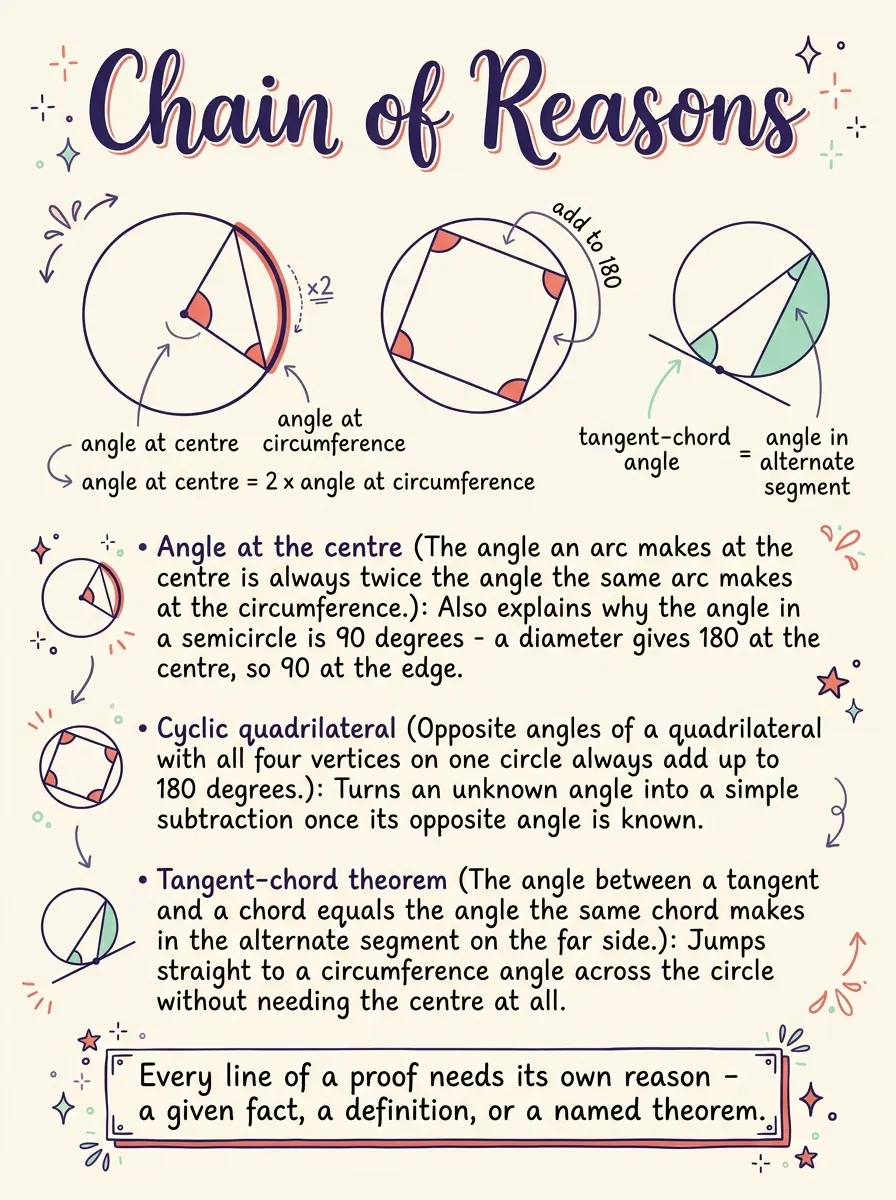 Chain of Reasons
×2
add to 180
angle at centre
angle at
circumference
angle at centre = 2 × angle at circumference
tangent-chord
angle
=
angle in
alternate
segment
• Angle at the centre (The angle an arc makes at the
centre is always twice the angle the same arc makes
at the circumference.): Also explains why the angle in
a semicircle is 90 degrees - a diameter gives 180 at the
centre, so 90 at the edge.
• Cyclic quadrilateral (Opposite angles of a quadrilateral
with all four vertices on one circle always add up to
180 degrees.): Turns an unknown angle into a simple
subtraction once its opposite angle is known.
• Tangent-chord theorem (The angle between a tangent
and a chord equals the angle the same chord makes
in the alternate segment on the far side.): Jumps
straight to a circumference angle across the circle
without needing the centre at all.
Every line of a proof needs its own reason –
a given fact, a definition, or a named theorem.